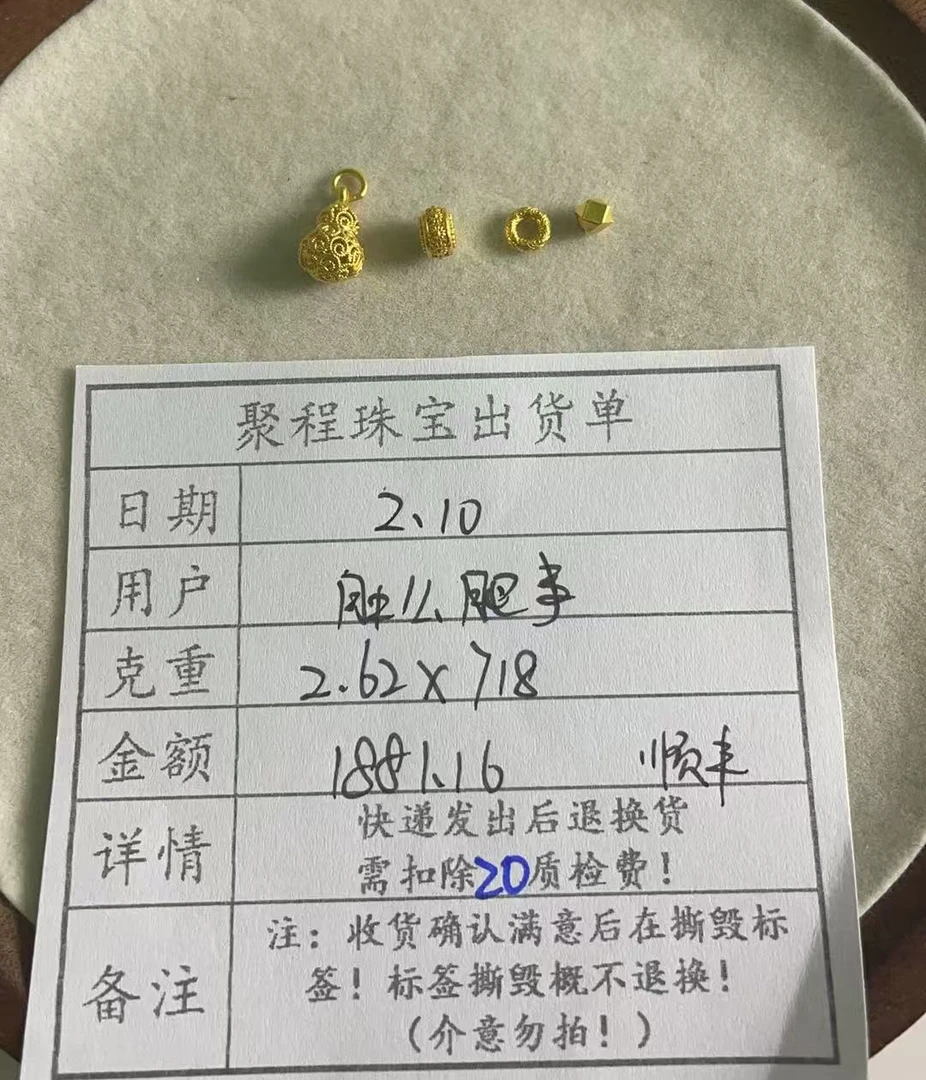 聚程珠宝出货单
日期 2.10
用户
克重 2.62×718
金额 1881.16 顺丰
详情 快递发出后退换货
需扣除20质检费!
备注 注:收货确认满意后在撕毁标
签!标签撕毁概不退换!
(介意勿拍!)